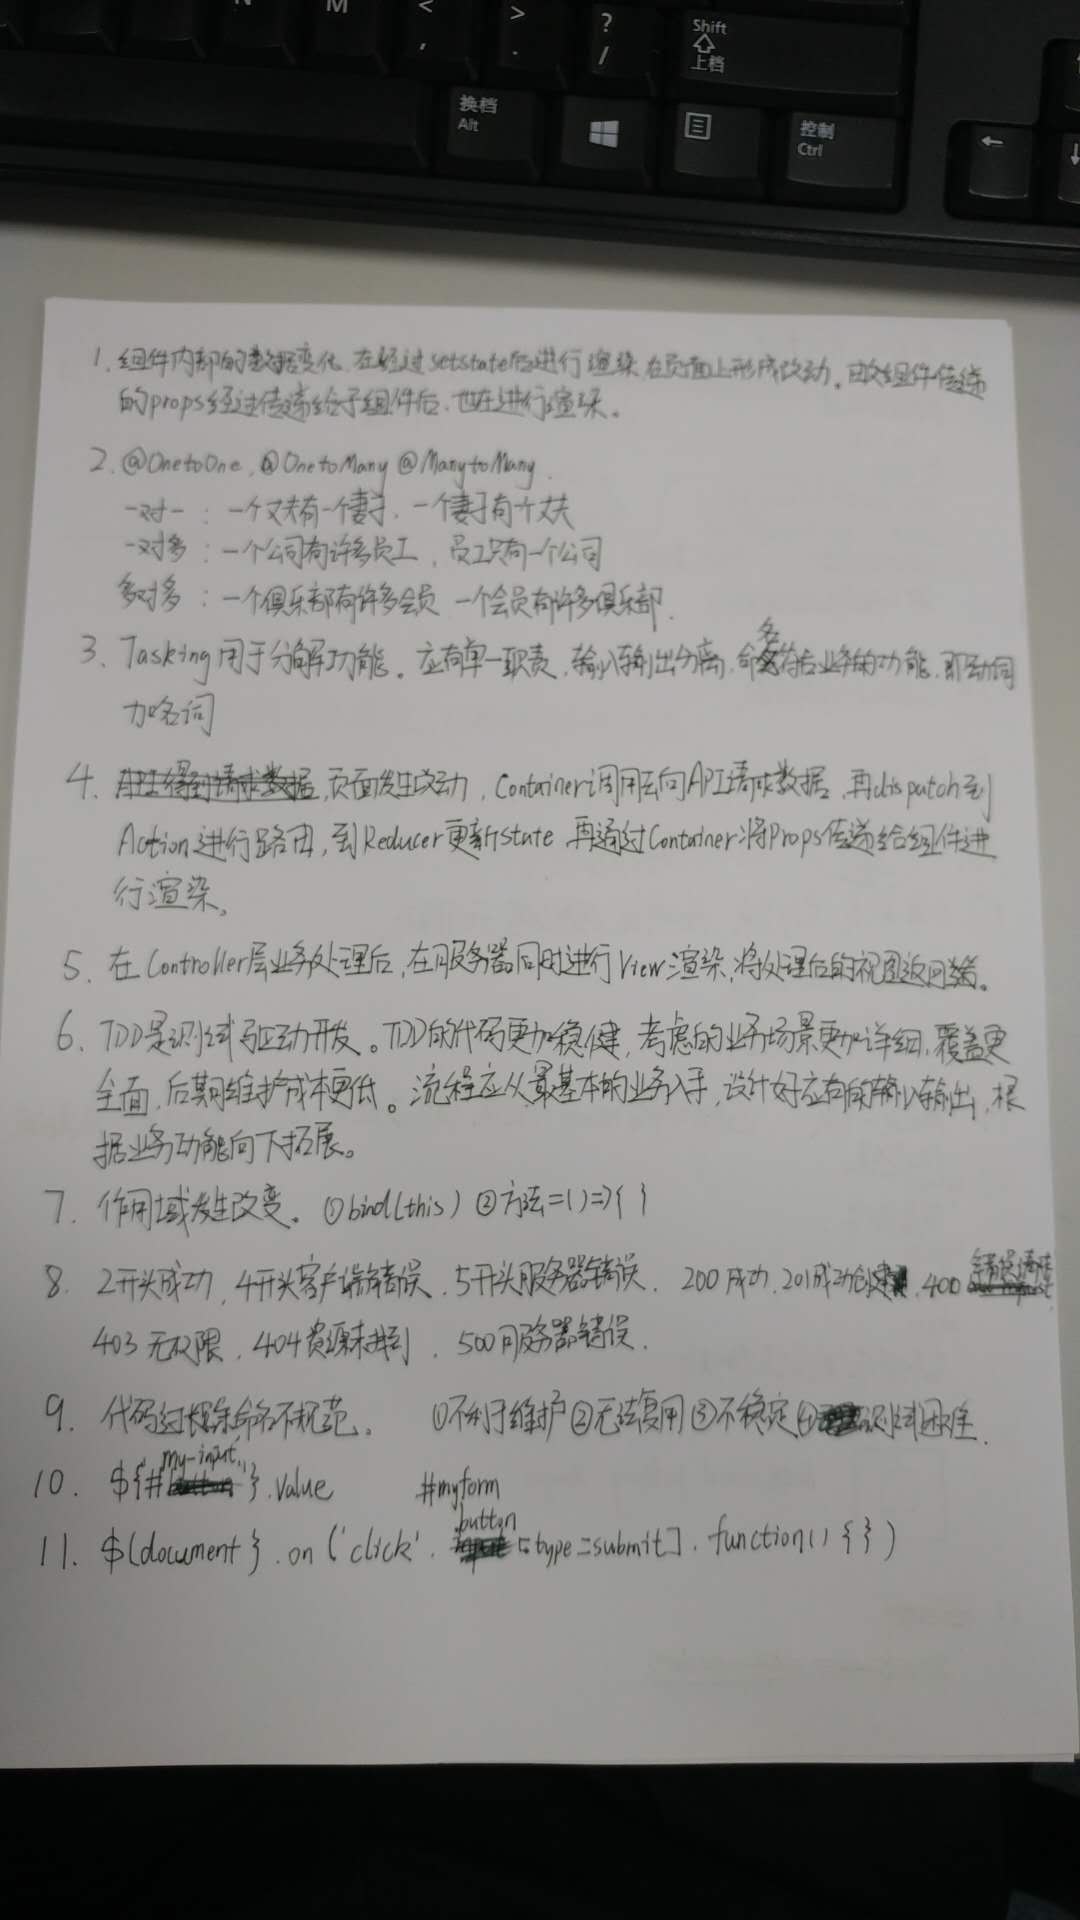 N M < , > . ? / Shift 上档
换档 Alt 控制 Ctrl ← ↓
1. 组件内部的数据变化,在经过setstate后进行渲染,在页面上形成改动。由父组件传递
的props经过传递给子组件后,也在进行渲染。
2. @OnetoOne, @OnetoMany @ManytoMany.
一对一:一个丈夫有一个妻子,一个妻子有个丈夫
一对多:一个公司有许多员工,员工只有一个公司
多对多:一个俱乐部有许多会员,一个会员有许多俱乐部.
3. Tasking用于分解功能。应有单一职责,输入输出分离,命名符合业务的功能,即动词
加名词
4. API得到请求数据,页面发生改动,Container调用去向API请求数据,再dispatch到
Action进行路由,到Reducer更新state 再通过Container将Props传递给组件进
行渲染。
5. 在Controller层业务处理后,在服务器同时进行View渲染,将处理后的视图返回。
6. TDD是测试驱动开发。TDD的代码更加稳健,考虑的业务场景更加详细,覆盖更
全面,后期维护成本更低。流程应从最基本的业务入手,设计好应有的输入输出,根
据业务功能向下拓展。
7. 作用域发生改变。①bind(this) ②方法=()=>{ }
8. 2开头成功,4开头客户端错误,5开头服务器错误. 200成功,201成功创建,400错误请求
403无权限,404资源未找到,500服务器错误.
9. 代码过长,命名不规范。 ①不利于维护②无法复用③不稳定④测试困难.
10. ${"#my-input"}.value #myform
11. $(document}.on('click'. button[type=submit], function(){ })